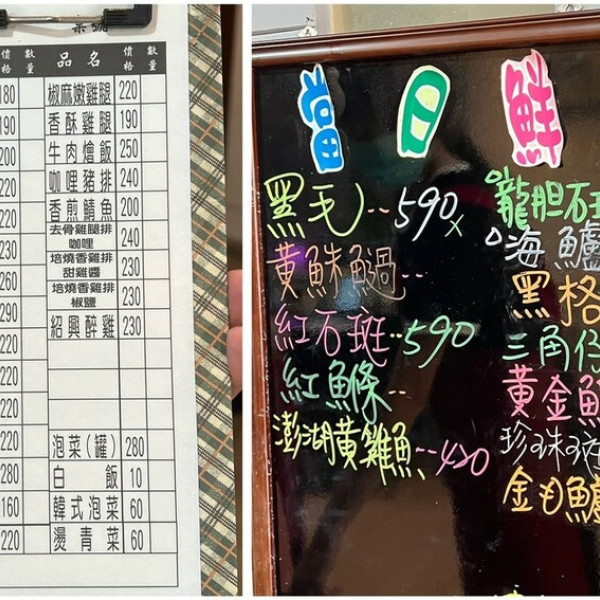 價格 數量 品名 價格 數量
180 椒麻嫩雞腿 220
190 香酥雞腿 190
200 牛肉燴飯 250
220 咖哩豬排 240
220 香煎鯖魚 200
230 去骨雞腿排咖哩 240
260 培燒香雞排甜雞醬 230
290 培燒香雞排椒鹽 230
220 紹興醉雞 230
220
220
220 泡菜(罐) 280
280 白飯 10
160 韓式泡菜 60
220 燙青菜 60
當日鮮
黑毛--590x
黃魚過--
紅石斑--590
紅條--
澎湖黃雞魚--420
龍胆石
海鱸
黑格
三角仔
黃金
珍珠
金目鱸